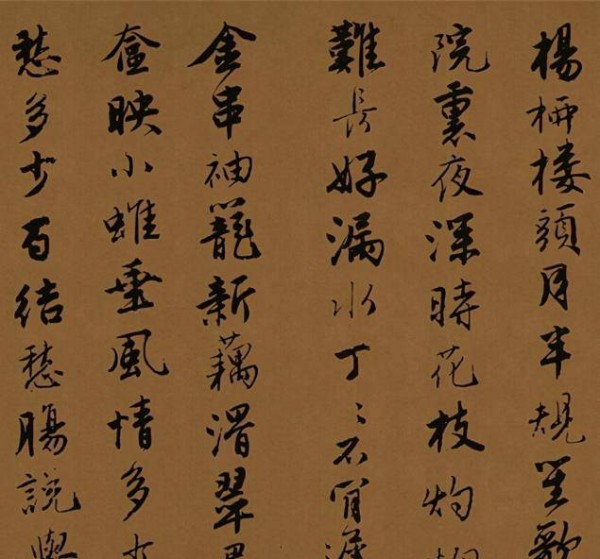 楊柳樓頭月半規笙歌
院裏夜深時花枝灼灼
難長好漏水丁丁不肯遲
金串袖籠新藕滑翠眉
奩映小蛾垂風情多少
愁多少百結愁腸說與